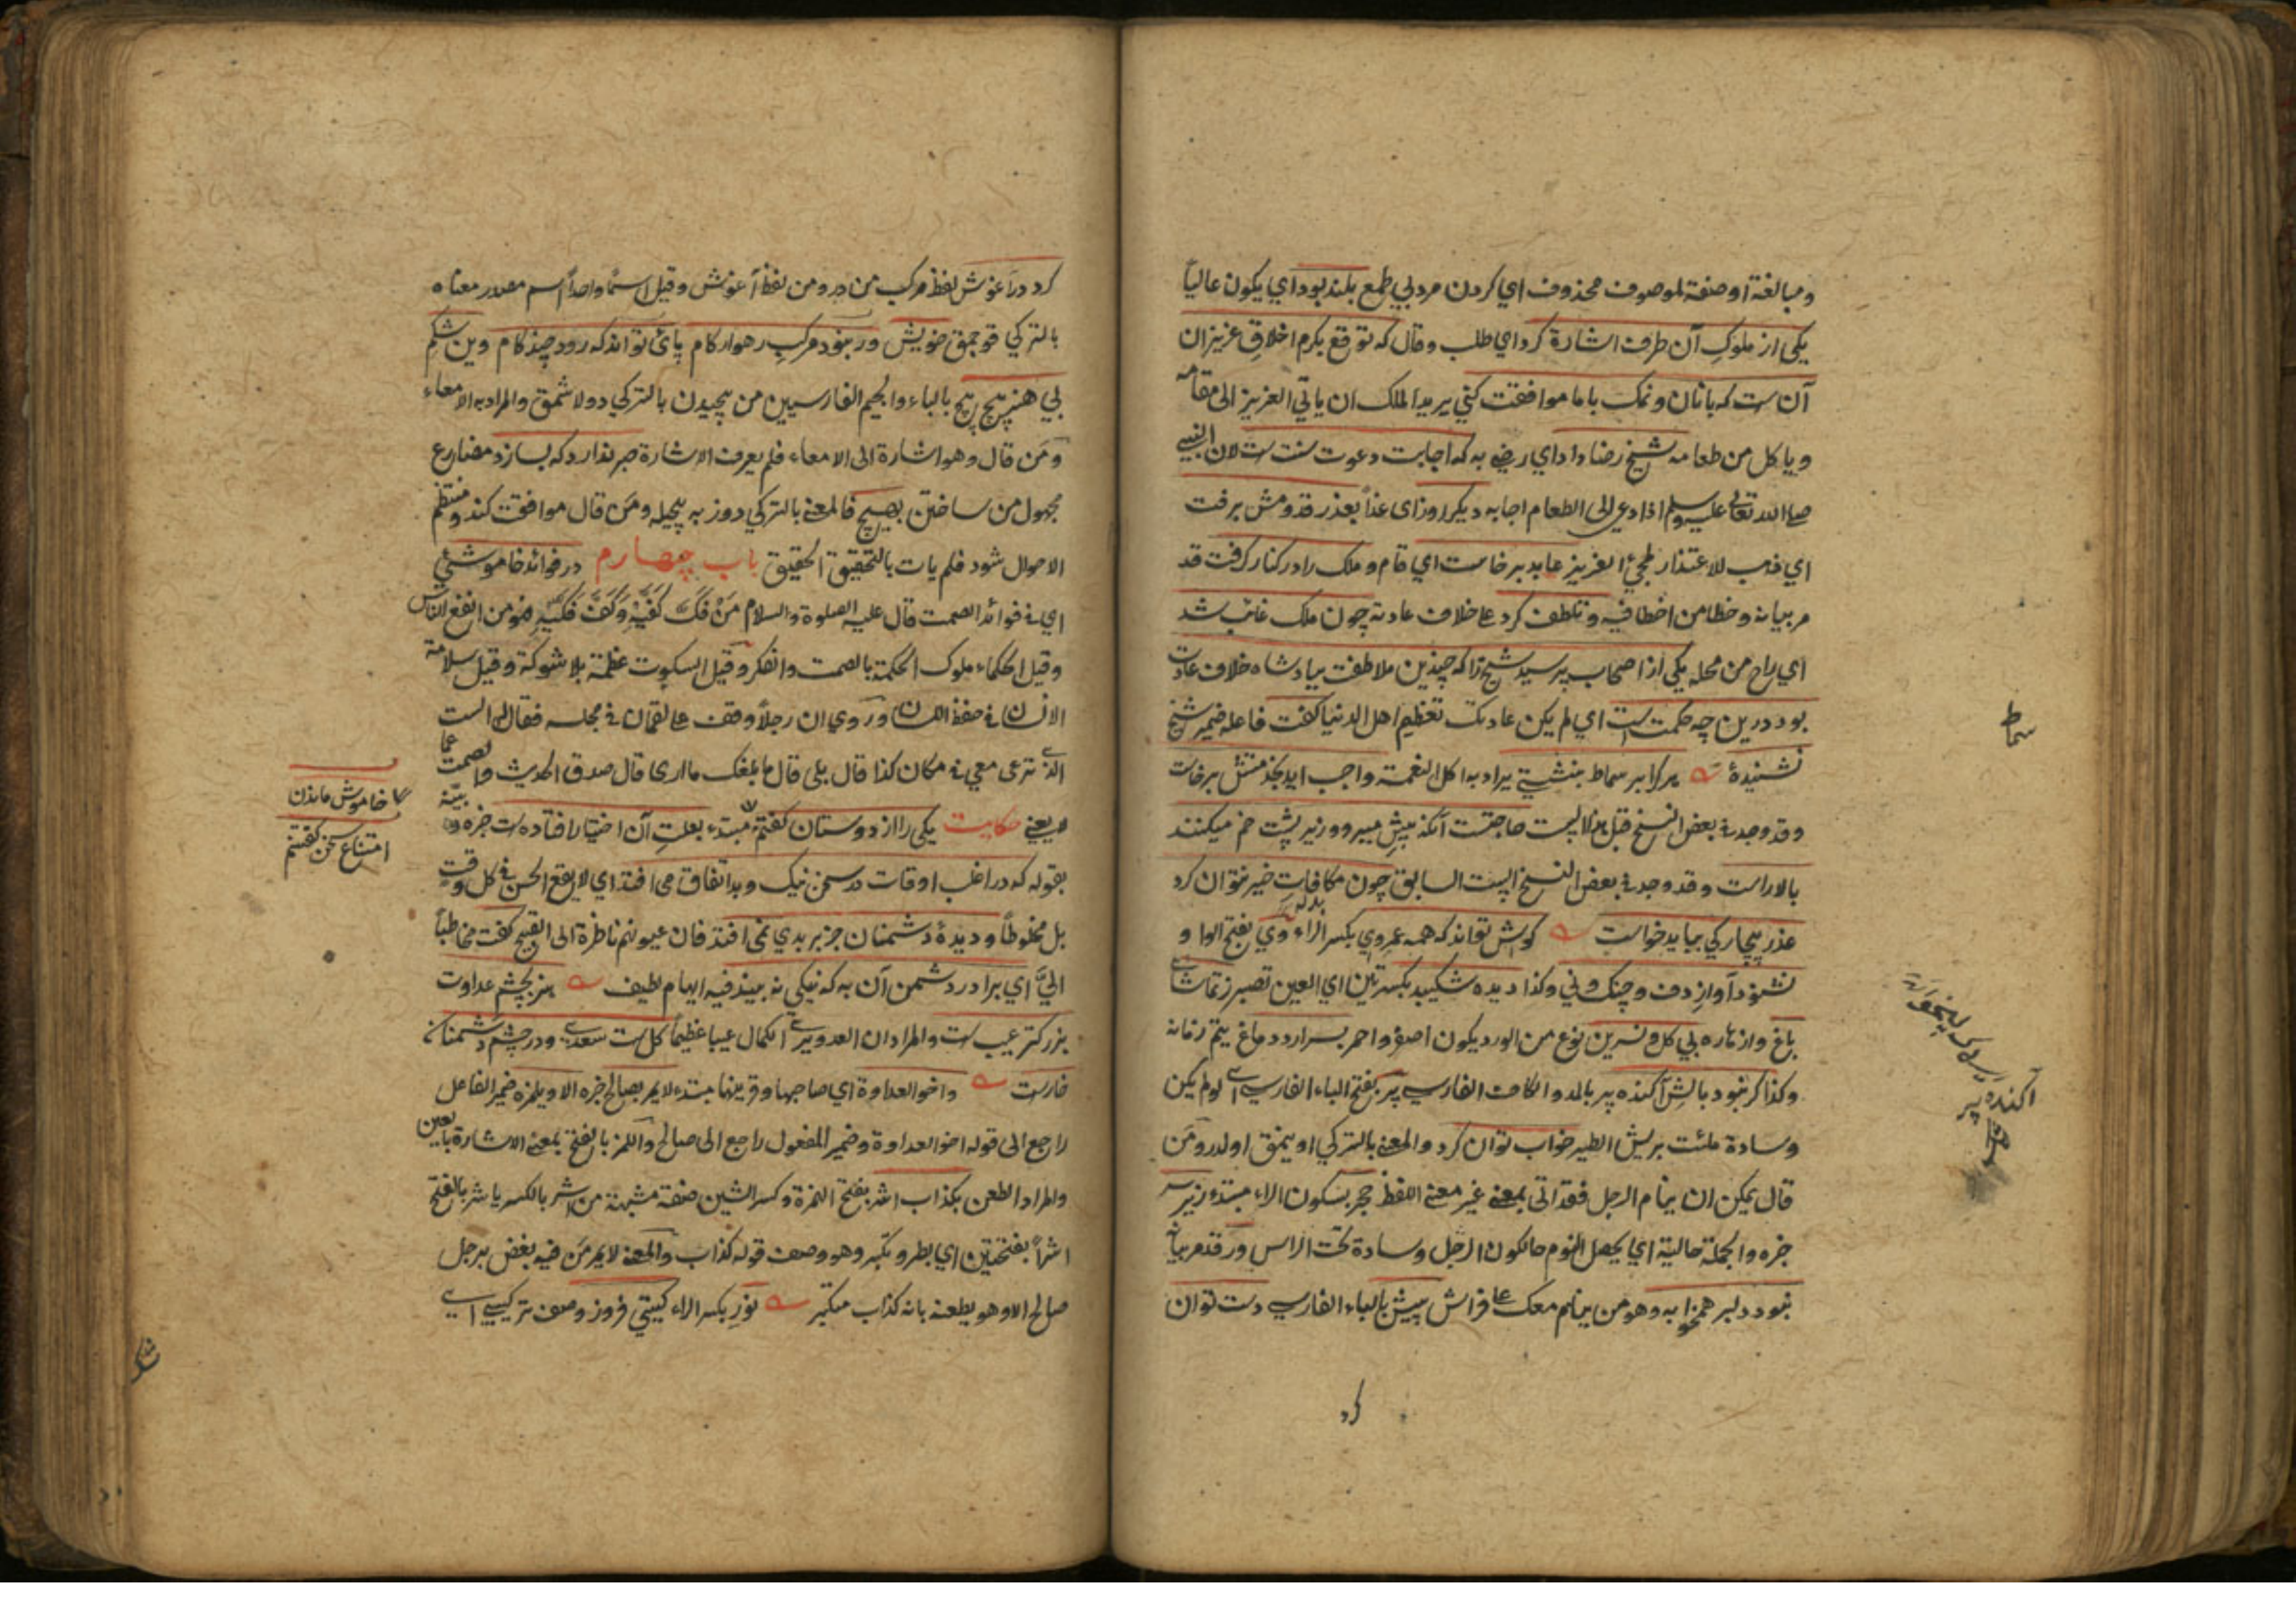 ومبالغة او صفة لموصوف محذوف اي كردن مرد بي طمع بلند بود اي يكون عالياً
يكى از ملوكِ آن طرف اشارة كرد اي طلب وقال كه توقع بكرم اخلاقِ عزيزان
آن ست كه بانان ونمك باما موافقت كني يريد الملك ان ياتي العزيز الى مقامه
وياكل من طعامه شيخ رضا داد اي رضي به كه اجابت دعوت سنت ست لان النبي
صلى الله تعالى عليه وسلم اذا دعي الى الطعام اجابه ديكر روز اى غداً بعذر قدومش برفت
اي ذهب للاعتذار لمجئ العزيز عابد برخاست اي قام وملك را در كنار كرفت قد
مر بيانه وخطا من اخطا فيه وتلطف كرد على خلاف عادته چون ملك غائب شد
اي راح من محله يكى از اصحاب پرسيد شيخ را كه چندين ملاطفت بپادشاه خلاف عادت
بود درين چه حكمت است اي لم يكن عادتك تعظيم اهل الدنيا كفت فاعله ضمير شيخ
نشنيدۀ هركرا بر سماط بنشيتي يراد به اكل النعمة واجب ايد بخدمتش برخاست
وقد وجد في بعض النسخ قبل هذا البيت حاجتست آنكه پيش ميرو وزير پشت خم ميكنند
بالاراست وقد وجد في بعض النسخ البيت السابق چون مكافات خير نتوان كرد
عذر بيچاركي ببايد خواست كوش تواند كه همه عمر وي بكسر الراء وَي بفتح الواو
نشنود آوازِ دف وچنك وني وكذا ديده شكيبد بكسرتين اي العين تصبر زتماشاي
باغ واز نهاره بي كل ونسرين نوع من الورد يكون اصفر واحمر بسر اردد دماغ يتم زمانه
وكذا كر نبود بالشِ آكنده پر بالمد والكاف الفارسي پَر بفتح الباء الفارسي اى لو لم يكن
وسادة ملئت بريش الطير خواب توان كرد والمعنى بالتركي اويمق اولدر ومَن
قال يمكن ان ينام الرجل فقد اتى بمعنى غير معنى اللفظ حجر بسكون الراء مبتدء زير سر
خبره والجملة حالية اي يحصل النوم حالكون الرجل وسادة تحت الراس ورقد مر بيانه
نبود دلبر همخوابه وهو من ينام معك على فراش پيش بالباء الفارسي دست توان
كرد
سماط
آكنده پر
كرد در آغوش لفظ مركب من در ومن لفظ آغوش وقيل اسمًا واحداً اسم مصدر معناه
بالتركي قوجمق خويش ور نبود مركبِ رهوار كام پائ تواند كه رود چند كام وين شكم
بي هنر پيچ پيچ بالباء والجيم الفارسيين من پيچيدن بالتركي دولاشمق والمراد به الامعاء
ومَن قال وهو اشارة الى الامعاء فلم يعرف الاشارة صبر ندارد كه بسازد مضارع
مجهول من ساختن بهيچ فالمعنى بالتركي دوزه به هيچيله ومَن قال موافقت كند ومنتظم
الاحوال شود فلم يات بالتحقيق الحقيق باب چهارم در فوائد خاموشئ
اي في فوائد الصمت قال عليه الصلوة والسلام مَنْ فَكَّ كَفَّيْهِ وَكَفَّ فَكَّيْهِ فهو من انفع الناس
وقيل الحكماء ملوك الحكمة بالصمت والفكر وقيل السكوت عظمة بلا شوكة وقيل سلامة
الانسان في حفظ اللسان ورَوي ان رجلاً وقف على لقمان في مجلسه فقال له الست
الذي ترعى معي في مكان كذا قال بلى قال ما بلغك ما ارى قال صدق الحديث والصمت عما
لا يعني حكايت يكى را از دوستان كفتم مبتدء بعلتِ آن اختيار افتاده ست خبره وبينه
بقوله كه در اغلب اوقات در سخن نيك وبد اتفاق مى افتد اي لا يقع الحسن في كل وقت
بل مخلوطاً وديدۀ دشمنان جز بر بدي نمى افتد فان عيونهم ناظرة الى القبيح كفت مخاطباً
اليَّ اي برادر دشمن آن به كه نيكي نه بيند فيه ايهام لطيف هنر بچشم عداوت
بزركتر عيب ست والمراد ان العدو يرى الكمال عيبا عظيماً كل ست سعدي ودر چشم دشمنان
خارست واخو العداوة اي صاحبها وقرينها مبتدء لا يمر بصالح خبره الا ويلمزه ضمير الفاعل
راجع الى قوله اخو العداوة وضمير المفعول راجع الى صالح واللمز بالفتح بمعنى الاشارة بالعين
والمراد الطعن بكذاب اشر بفتح الهمزة وكسر الشين صفة مشبهة من اشر بالكسر ياشر بالفتح
اشراً بفتحتين اي بطر وتكبر وهو وصف قوله كذاب والمعنى لا يمر مَن فيه بغض برجل
صالح الا وهو يطعنه بانه كذاب متكبر نورِ بكسر الراء كيتي فروز وصف تركيبي اى
خاموش ماندن
امتناع سخن كفتنم